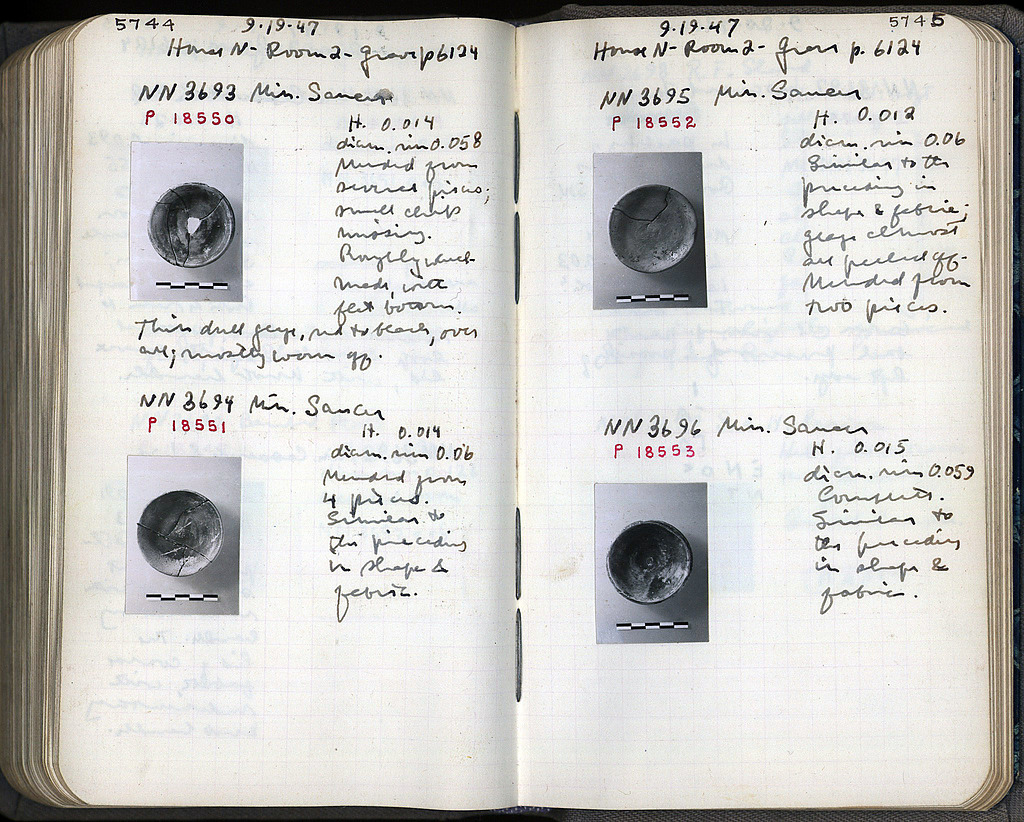 5744
9-19-47
House N- Room 2- grave p 6124
NN 3693 Min. Saucer
P 18550
H. 0.014
diam. rim 0.058
Mended from
several pieces;
small chips
missing.
Roughly
made, with
flat bottom.
Thin dull glaze, red to black, over
all; mostly worn off.
NN 3694 Min. Saucer
P 18551
H. 0.014
diam. rim 0.06
Mended from
4 pieces.
Similar to
the preceding
in shape &
fabric.
9-19-47
5745
House N- Room 2- Grave p. 6124
NN 3695 Min. Saucer
P 18552
H. 0.012
diam. rim 0.06
Similar to the
preceding in
shape & fabric;
glaze almost
all peeled off.
Mended from
two pieces.
NN 3696 Min. Saucer
P 18553
H. 0.015
diam. rim 0.059
Complete.
Similar to
the preceding
in shape &
fabric.